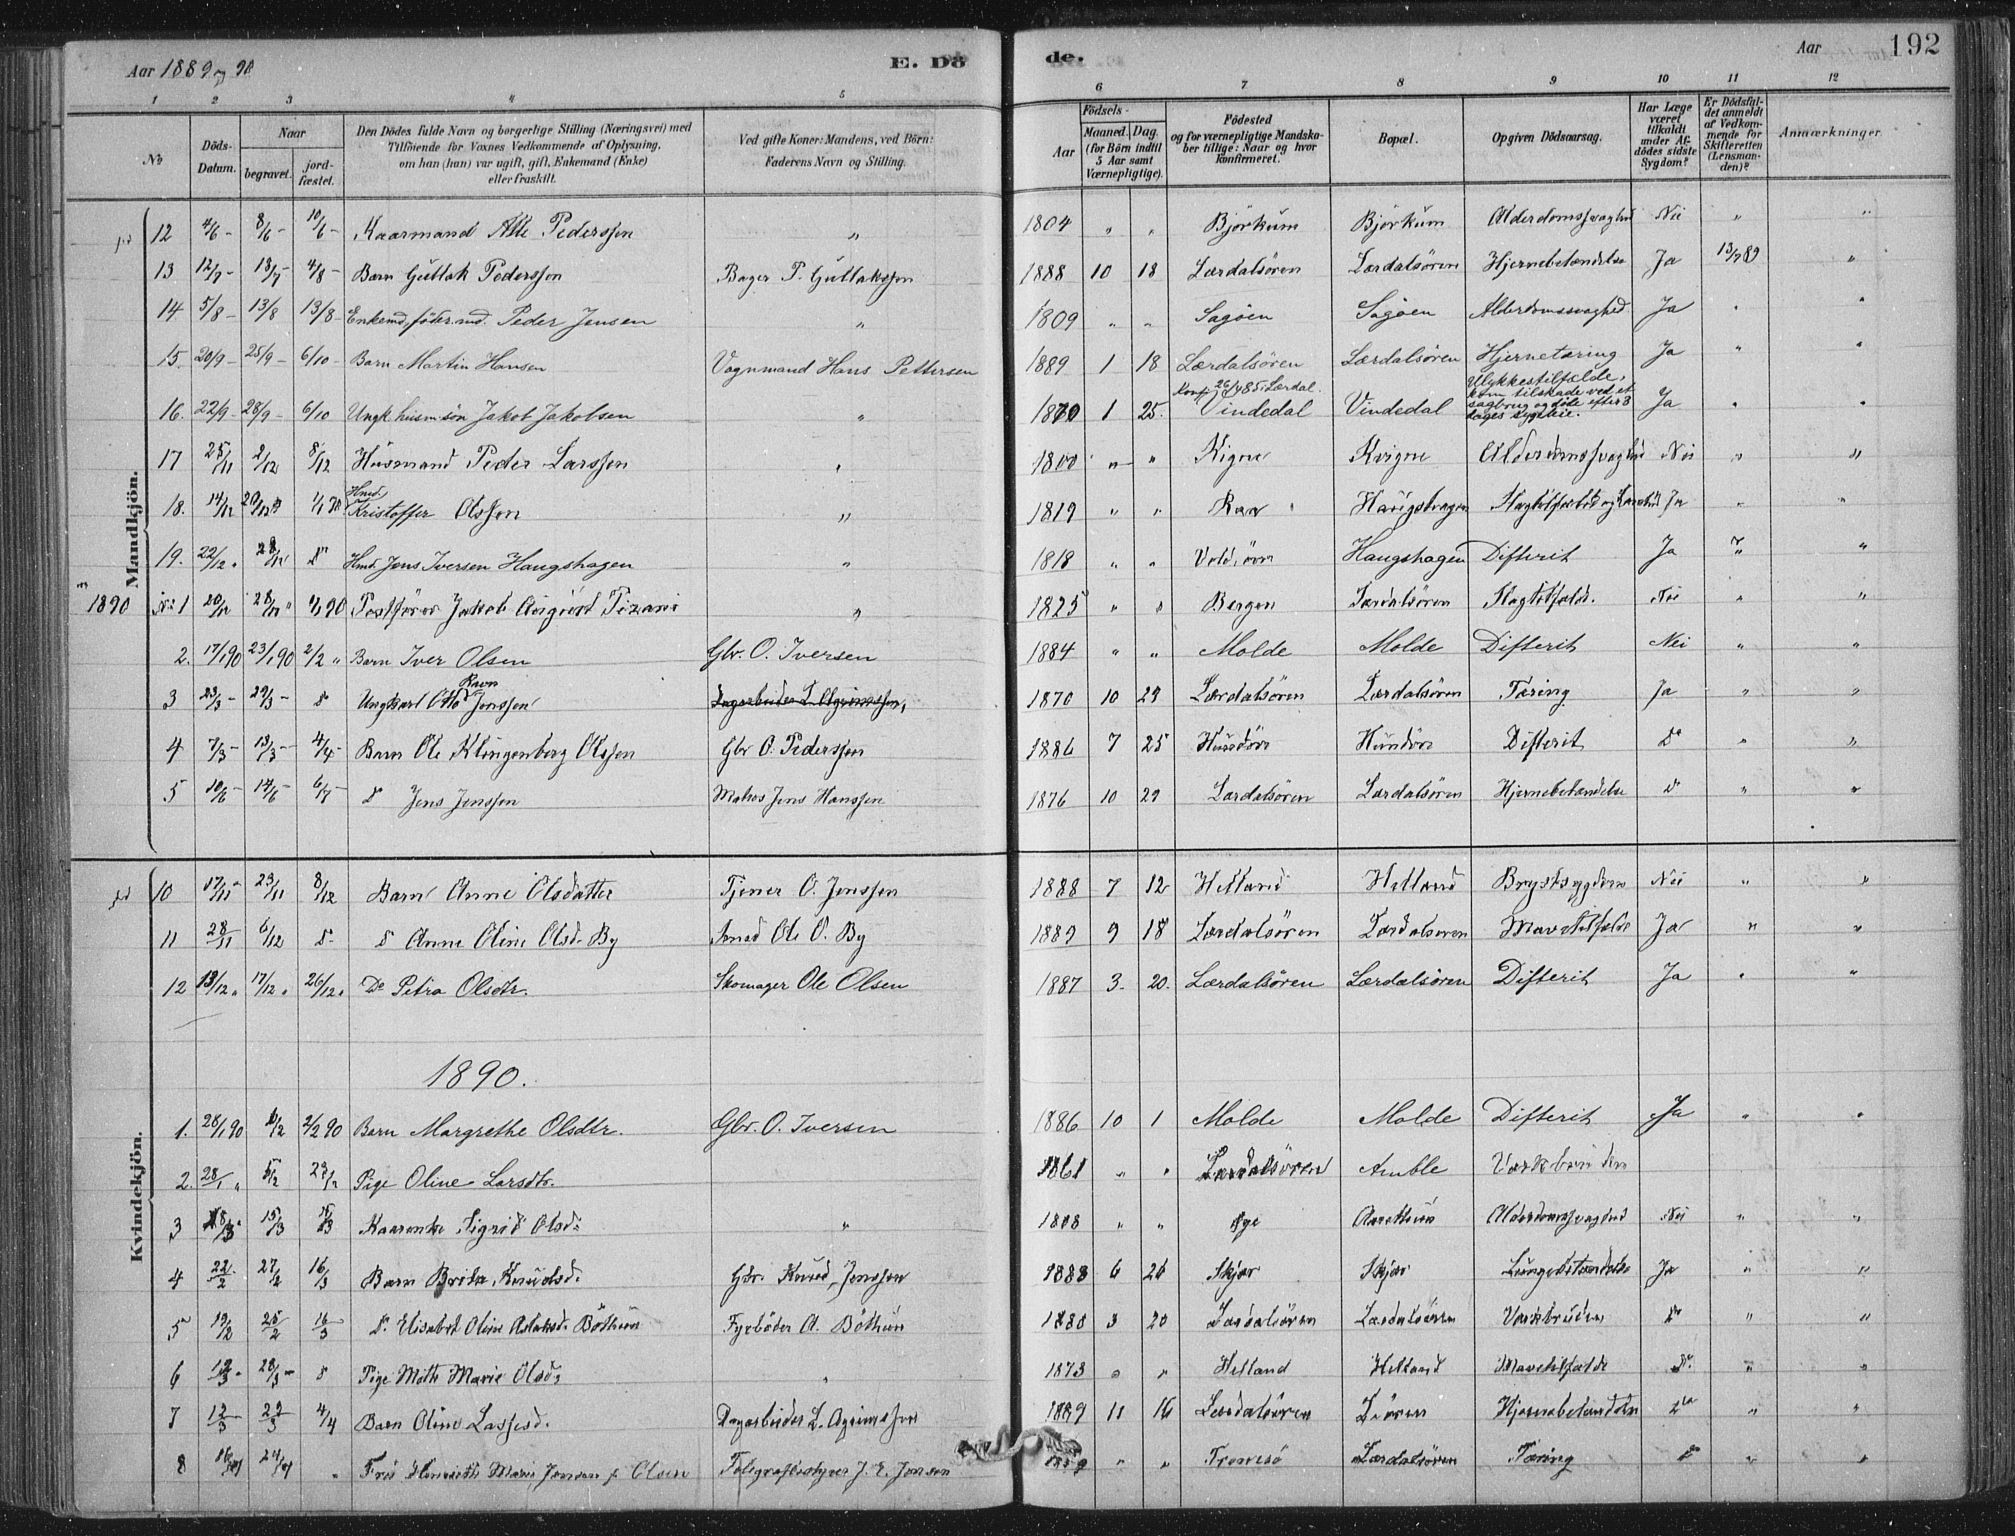 Aar 1889 og 90 E. Dö de. Aar 192
1 2 3 4 5 6 7 8 9 10 11 12
No Döds-Datum. Naar begravet. jord-fæstet. Den Dödes fulde Navn og borgerlige Stilling (Næringsvei) med Tilföiende for Voxnes Vedkommende af Oplysning, om han (hun) var ugift, gift, Enkemand (Enke) eller fraskilt. Ved gifte Koner: Mandens, ved Börn: Faderens Navn og Stilling. Födsels- Aar Maaned. Dag. (for Börn indtil 5 Aar samt Værnepligtige). Födested og for værnepligtige Mandska-ber tillige: Naar og hvor konfirmeret. Bopæl. Opgiven Dödsaarsag. Har Læge været tilkaldt under Af-dödes sidste Sygdom? Er Dödsfal-det anmeldt af Vedkom-mende for Skifteretten (Lensman-den)? Anmærkninger.
Mandkjön.
12 4/6 - 8/6 - 10/6 - Kaarmand Atle Pederssen " 1804 " " Björkum Björkum Alderdomssvaghed Nei " "
13 12/7 - 18/7 - 4/8 - Barn Guttak Pederssen Bager P. Guttakssen 1888 10 18 Lærdalsören Lærdalsören Hjernebetændelse Ja 13/7 89 "
14 5/8 - 13/8 13/8 - Enkemd, föder.md. Peder Jensen " 1809 " " Sagöen Sagöen Alderdomssvaghed Ja " "
15. 20/9 - 25/9 - 6/10 - Barn Martin Hansen Vognmand Hans Pettersen 1889 1 18 Lærdalsören Lærdalsören Hjernetæring Ja " "
16. 22/9 - 28/9 - 6/10 Ungk. husm.sön Jakob Jakobsen " 1870 1 25. Konf. 26/4 85 i Lærdal. Vindedal Vindedal Ulykkestilfælde, kom tilskade ved et sagbrug og döde efter 8 dages sygeleie. Ja " "
17 25/11 2/12 8/12 Husmand Peder Larssen " 1800 " " Kigne Kvigne Alderdomssvaghed Nei " "
18. 14/12 20/12 1/1 90 Hmd. Kristoffer Olssen " 1819 " " Haugshagen Ja " "
19. 22/12 " 28/12 do Hmd. Jens Iversen Haugshagen " 1818 " " Haugshagen Difterit Ja " "
1890 No 1 20/12 28/12 " 1/1 90 Postförer Jakob August Pizani " 1825 " " Bergen Lærdalsören Slagtilfælde. Nei " "
2. 17/1 90 23/1 90 2/2 " Barn Iver Olsen Gbr. O. Iversen 1884 " " Molde Molde Difterit Nei " "
3 23/3 - 29/3 - do Ungkarl Otto Ravn Jenssen 1870 10 29 Lærdalsören Lærdalsören Tæring Ja " "
4 7/3 - 13/3 - 4/4 - Barn Ole Klingenberg Olssen Gbr O. Pederssen 1886 7 25 Difterit do " "
5 10/6 - 14/6 - 6/7 - do Jens Jenssen Matros Jens Hanssen 1876 10 29 Lærdalsören Lærdalsören Hjernebetændelse do " "
Kvindekjön.
10 17/11 - 23/11 8/12 Barn Anne Olsdatter Tjener O. Jenssen 1888 7 12 Hetland Hetland Brystsygdom Nei " "
11 28/11 6/12 do do Anne Oline Olsd. By Ole O. By 1889 9 18 Lærdalsören Lærdalsören Mavetilfælde Ja " "
12 13/12 " 17/12 " 26/12 " Do Petra Olsdtr. Skomager Ole Olsen 1887 3. 20. Lærdalsören Lærdalsören Difterit Ja " "
1890.
1. 28/1 90 2/2 90 Barn Margrethe Olsdtr. Gbr. O. Iversen 1886 10 1 Molde Molde Difterit Ja " "
2. 28/1 " 5/2 Pige Oline Larsdtr. 1861 " " Lærdalsören Amble
3 15/3 Kaarenke Sigrid Olsd. " 1808 " " Øye Alderdomssvaghed Nei " "
4 22/2 27/2 16/3 Barn Brita Knudsd. Gbr. Knud Jenssen 1888 6 26 Skjær Skjær Lungebetændelse Ja " "
5 19/2 25/2 16/3 do Elisabet Oline Aslaksd. Böthun Fyrböter A. Böthun 1880 3 20 Lærdalsören Lærdalsören do " "
6 28/3 - do Pige Marie Olsd. " 1873 " " Hetland Hetland Mavetilfælde do " "
7 29/3 4/4 Barn Oline Lassesd. Dagarbeider L. Agrimssen 1889 11 16 Lærdalsören Hjernebetændelse do " "
8 " Fru Henriette Marie Jensen f. Olsen Telegrafbestyrer J. E. Jensen " " Tromsö Lærdalsören Tæring do " "